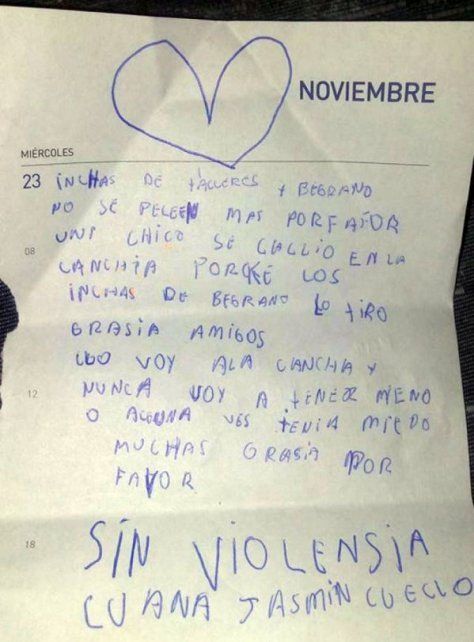 NOVIEMBRE
MIÉRCOLES
23 INCHAS DE TALLERES Y BEGRANO
NO SE PELEEN MAS PORFAFOR
UNI CHICO SE CALLIO EN LA
08
CANCHIA PORKÉ LOS
INCHAS DE BEGRANO LO TIRO
GRASIA AMIGOS
VOY ALA CANCHA Y
12
NUNCA VOY A TENER MENO
O ALGUNA VES TENIA MIEDO
MUCHAS GRASIA POR
FAVOR
18
SIN VIOLENSIA
LUANA JASMIN CUELLO